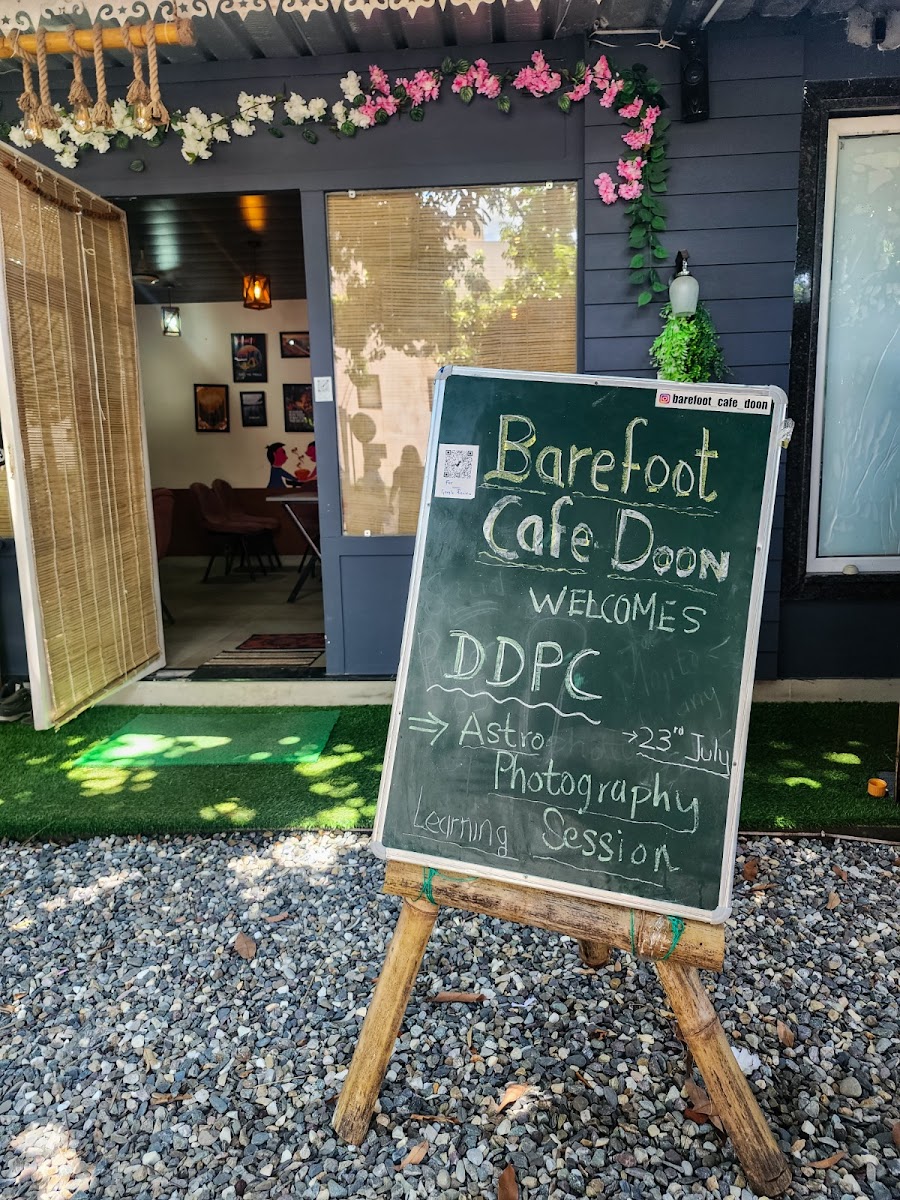 barefoot_cafe_doon
Barefoot
Cafe Doon
WELCOMES
DDPC
⇒ Astro → 23rd July
Photography
Learning Session